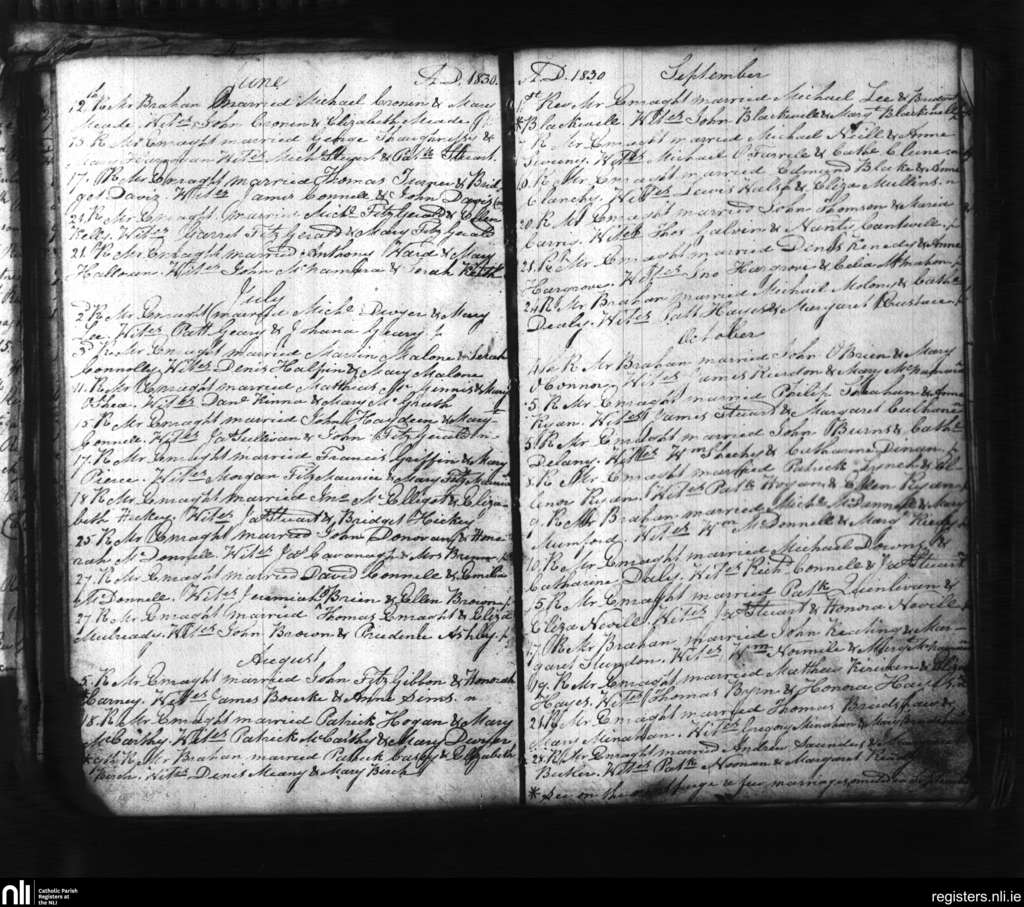 June A.D. 1830
12th R Mr Brahan married Michael Cronen & Mary
Meade. Witss John Cronen & Elizabeth Meade
15 R Mr Enraght married George Shaughnessy &
Witss Michl & Patk Stuart
17 R Mr Enraght married Thomas & Brid
get Davis. Witss James Connell & John Davis
21 R Mr Enraght married Michl Fitz Gerald & Ellen
Kelly Witss Garret Fitz Gerald & Mary Fitz Gerald
21. R Mr Enraght married Anthony Ward & Mary
Halloran. Witss John McNamara & Sarah
July
2d R Mr Enraght married Michl Dwyer & Mary
Lee. Witss Patt Geary & Johana Geary
R Mr Enraght married Martin Malone & Sarah
Connolly Witss Denis Halpin & Mary Malone
11. R Mr Enraght married Matthias Mc Minnis & Mary
O'Shea. Witss Danl Kinna & Mary McGrath
15 R Mr Enraght married John Haydeen & Mary
Connell. Witss Jas Sullivan & John Fitz Gerald
17. R Mr Enraght married Francis Griffin & Mary
Pierce. Witss Morgan Fitz Maurice & Mary Fitz Maurice
18 R Mr Enraght married Jno McElligot & Eliza-
beth Hickey. Witss Jas Stuart & Bridget Hickey
25 R Mr Enraght married John Donovan & Hono
rah McDonnell. Witss Jas Cavanagh & Mrs
27 R Mr Enraght married David Connell & Emilia
McDonnell. Witss Jeremiah O'Brien & Ellen Brown
27 R Mr Enraght married Thomas Enraght & Eliza
Mulready. Witss John Brown & Prudence Ashley
August
5 R Mr Enraght married John Fitz Gibbon & Honorah
Carney Witss James Bourke & Anne Sims. n
18. R Mr Enraght married Patrick Hogan & Mary
McCarthy. Witss Patrick McCarthy & Mary Dwyer
R Mr Brahan married Patrick Casey & Elizabeth
Birch. Witss Denis Meany & Mary Birch
A.D. 1830 September
1st Rev Mr Enraght married Michael Lee & Bridget
Blackwell Witss John Blackwell & Mary Blackwell
R Mr Enraght married Michael Neill & Anne
Sweeny. Witss Michael O'Farrele & Cathe Clune
10. R Mr Enraght married Edmund Blake & Anne
Clanchy. Witss Lewis Walsh & Eliza Mullins. n
20. R Mr Enraght married John Thomson & Maria
Carry. Witss Thos Galvin & Nanty Cantwell
21. R Mr Enraght married Denis Kenedy & Anne
Hargrove. Witss Jno Hargrove & Celia McMahon
24 R Mr Brahan married Michael Molony & Cathe
Dealy. Witss Patt Hayes & Margaret Eustace
October
R Mr Brahan married John O'Brien & Mary
O'Connor. Witss James Riordon & Mary McNamara
5. R Mr Enraght married Philip Shahan & Anne
Ryan. Witss James Stuart & Margaret Culhane
5. R Mr Enraght married John Burns & Cathe
Delany. Witss Wm Leehy & Catharine Dinan
8. R Mr Enraght married Patrick Lynch & El
lenor Ryan. Witss Patk Hogan & Ellen Ryan
9. R Mr Brahan married Michl McDonnell & Mary
Mumford. Witss Wm McDonnell & Mary
10. R Mr Enraght married Michael Downs &
Catharine Daly. Witss Richd Connell & Jas Stuart
5 R Mr Enraght married Patk Quinlivan &
Eliza Nevill. Witss Jas Stuart & Honora Nevill
17. R Mr Brahan married John Keating & Mar-
garet Slundon. Witss Wm Normile & Mary
19. R Mr Enraght married Mathew & Eliza
Hayes. Witss Thomas Byrn & Honora Hayes
21. R Mr Enraght married Thomas Bradshaw &
Mary Minahan. Witss Gregory Minahan & Mary Bradshaw
28. R Mr Enraght married Andrew Saunders &
Beeker. Witss Patk Noonan & Margaret
* See on the next page a few marriages omitted in September
nli Catholic Parish
Registers at
the NLI
registers.nli.ie